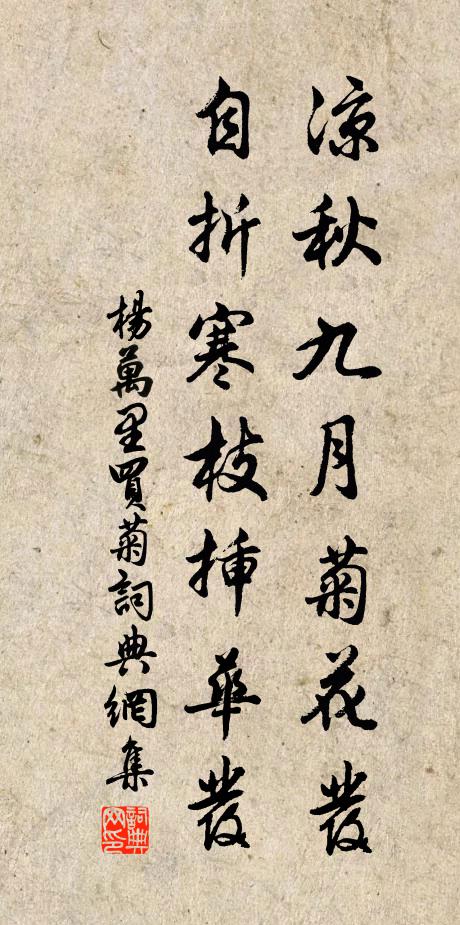 涼秋九月菊花發
自折寒枝挿華髮
楊萬里買菊詞典網集
詞典网印